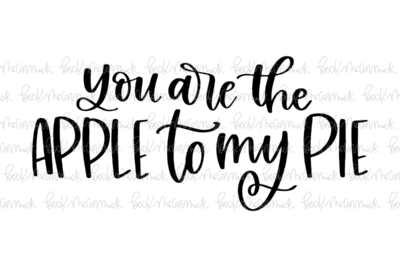 you are the
APPLE to my PIE